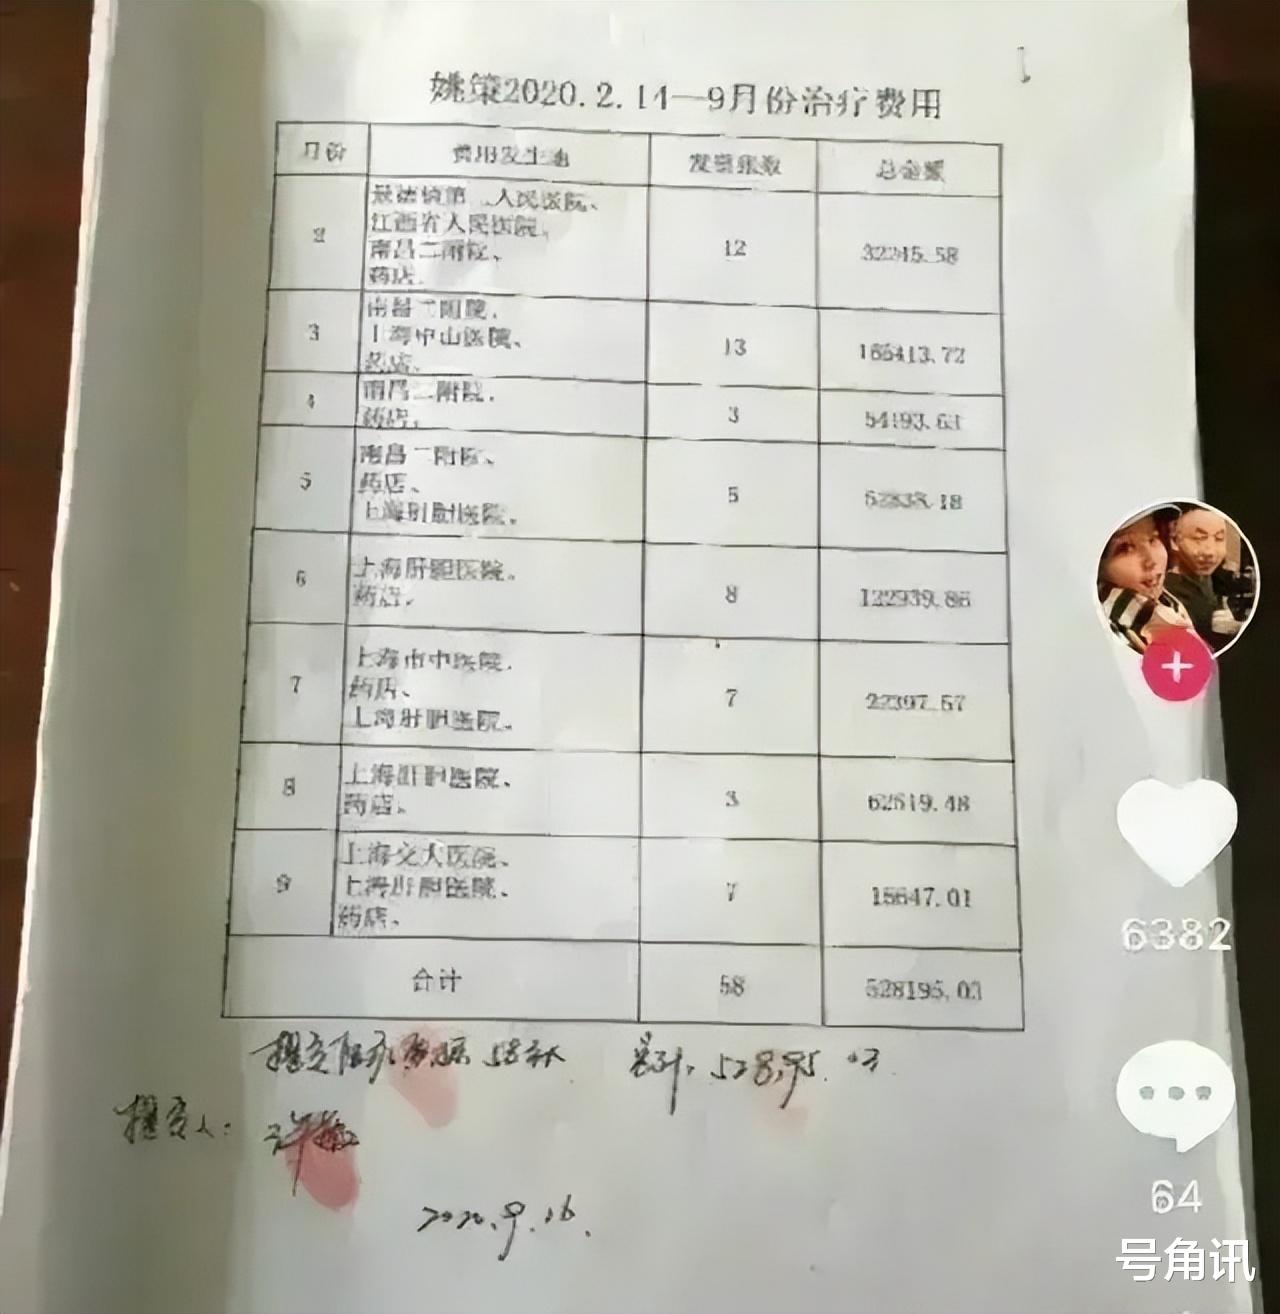 姚策2020.2.14—9月份治疗费用
月份 费用发生地 发票张数 总金额
2 景德镇第 人民医院、 12 32245.58
江西省人民医院、
南昌二附院、
药店、
3 南昌二附院、 13 165413.72
上海中山医院、
药店、
4 南昌二附院、 3 54193.63
药店、
5 南昌二附院、 5 52838.18
药店、
上海肝胆医院、
6 上海肝胆医院、 8 122939.86
药店、
7 上海市中医院、 7 22397.57
药店、
上海肝胆医院、
8 上海肝胆医院、 3 62519.48
药店、
9 上海交大医院、 7 15647.01
上海肝胆医院、
药店、
合计 58 528195.03
提交医疗票据58张 总计: 528195.03
提交人: 许敏
2020.9.16.
6382
64
号角讯